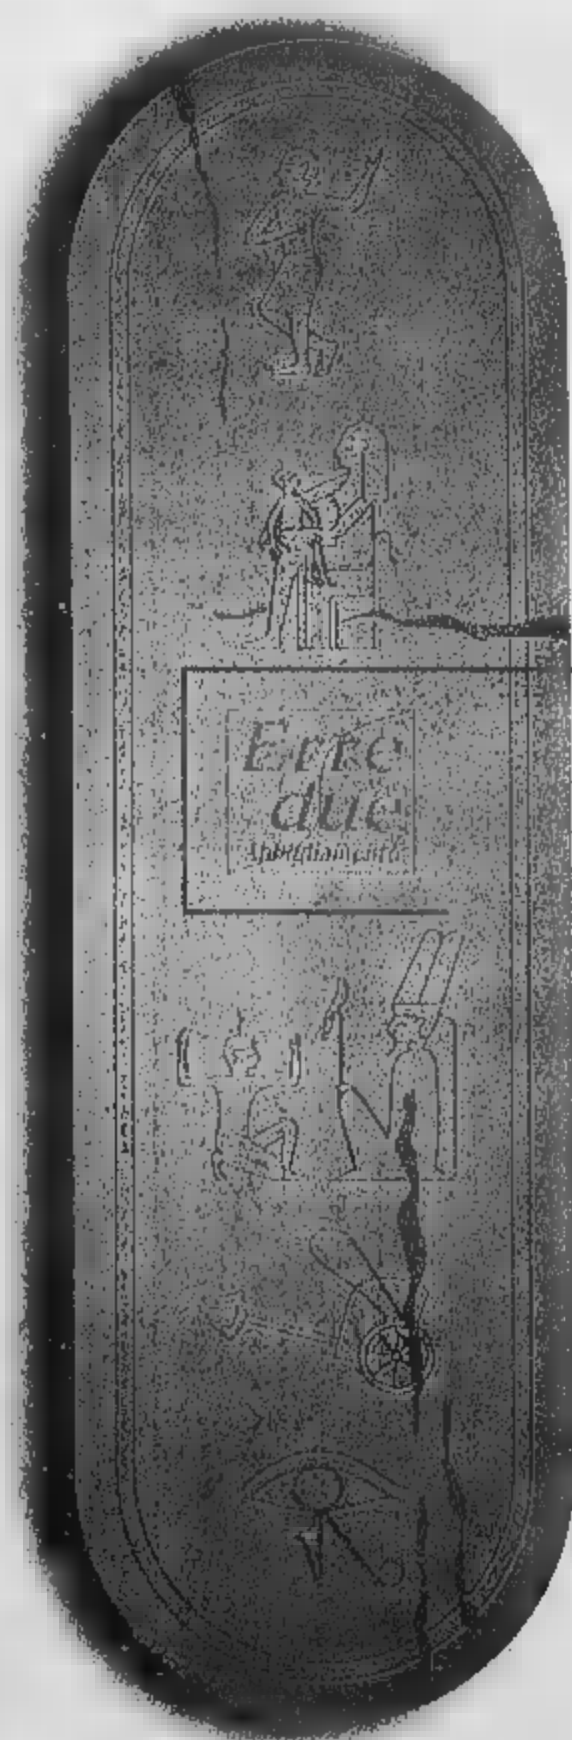 Erre
due
Abbigliamento